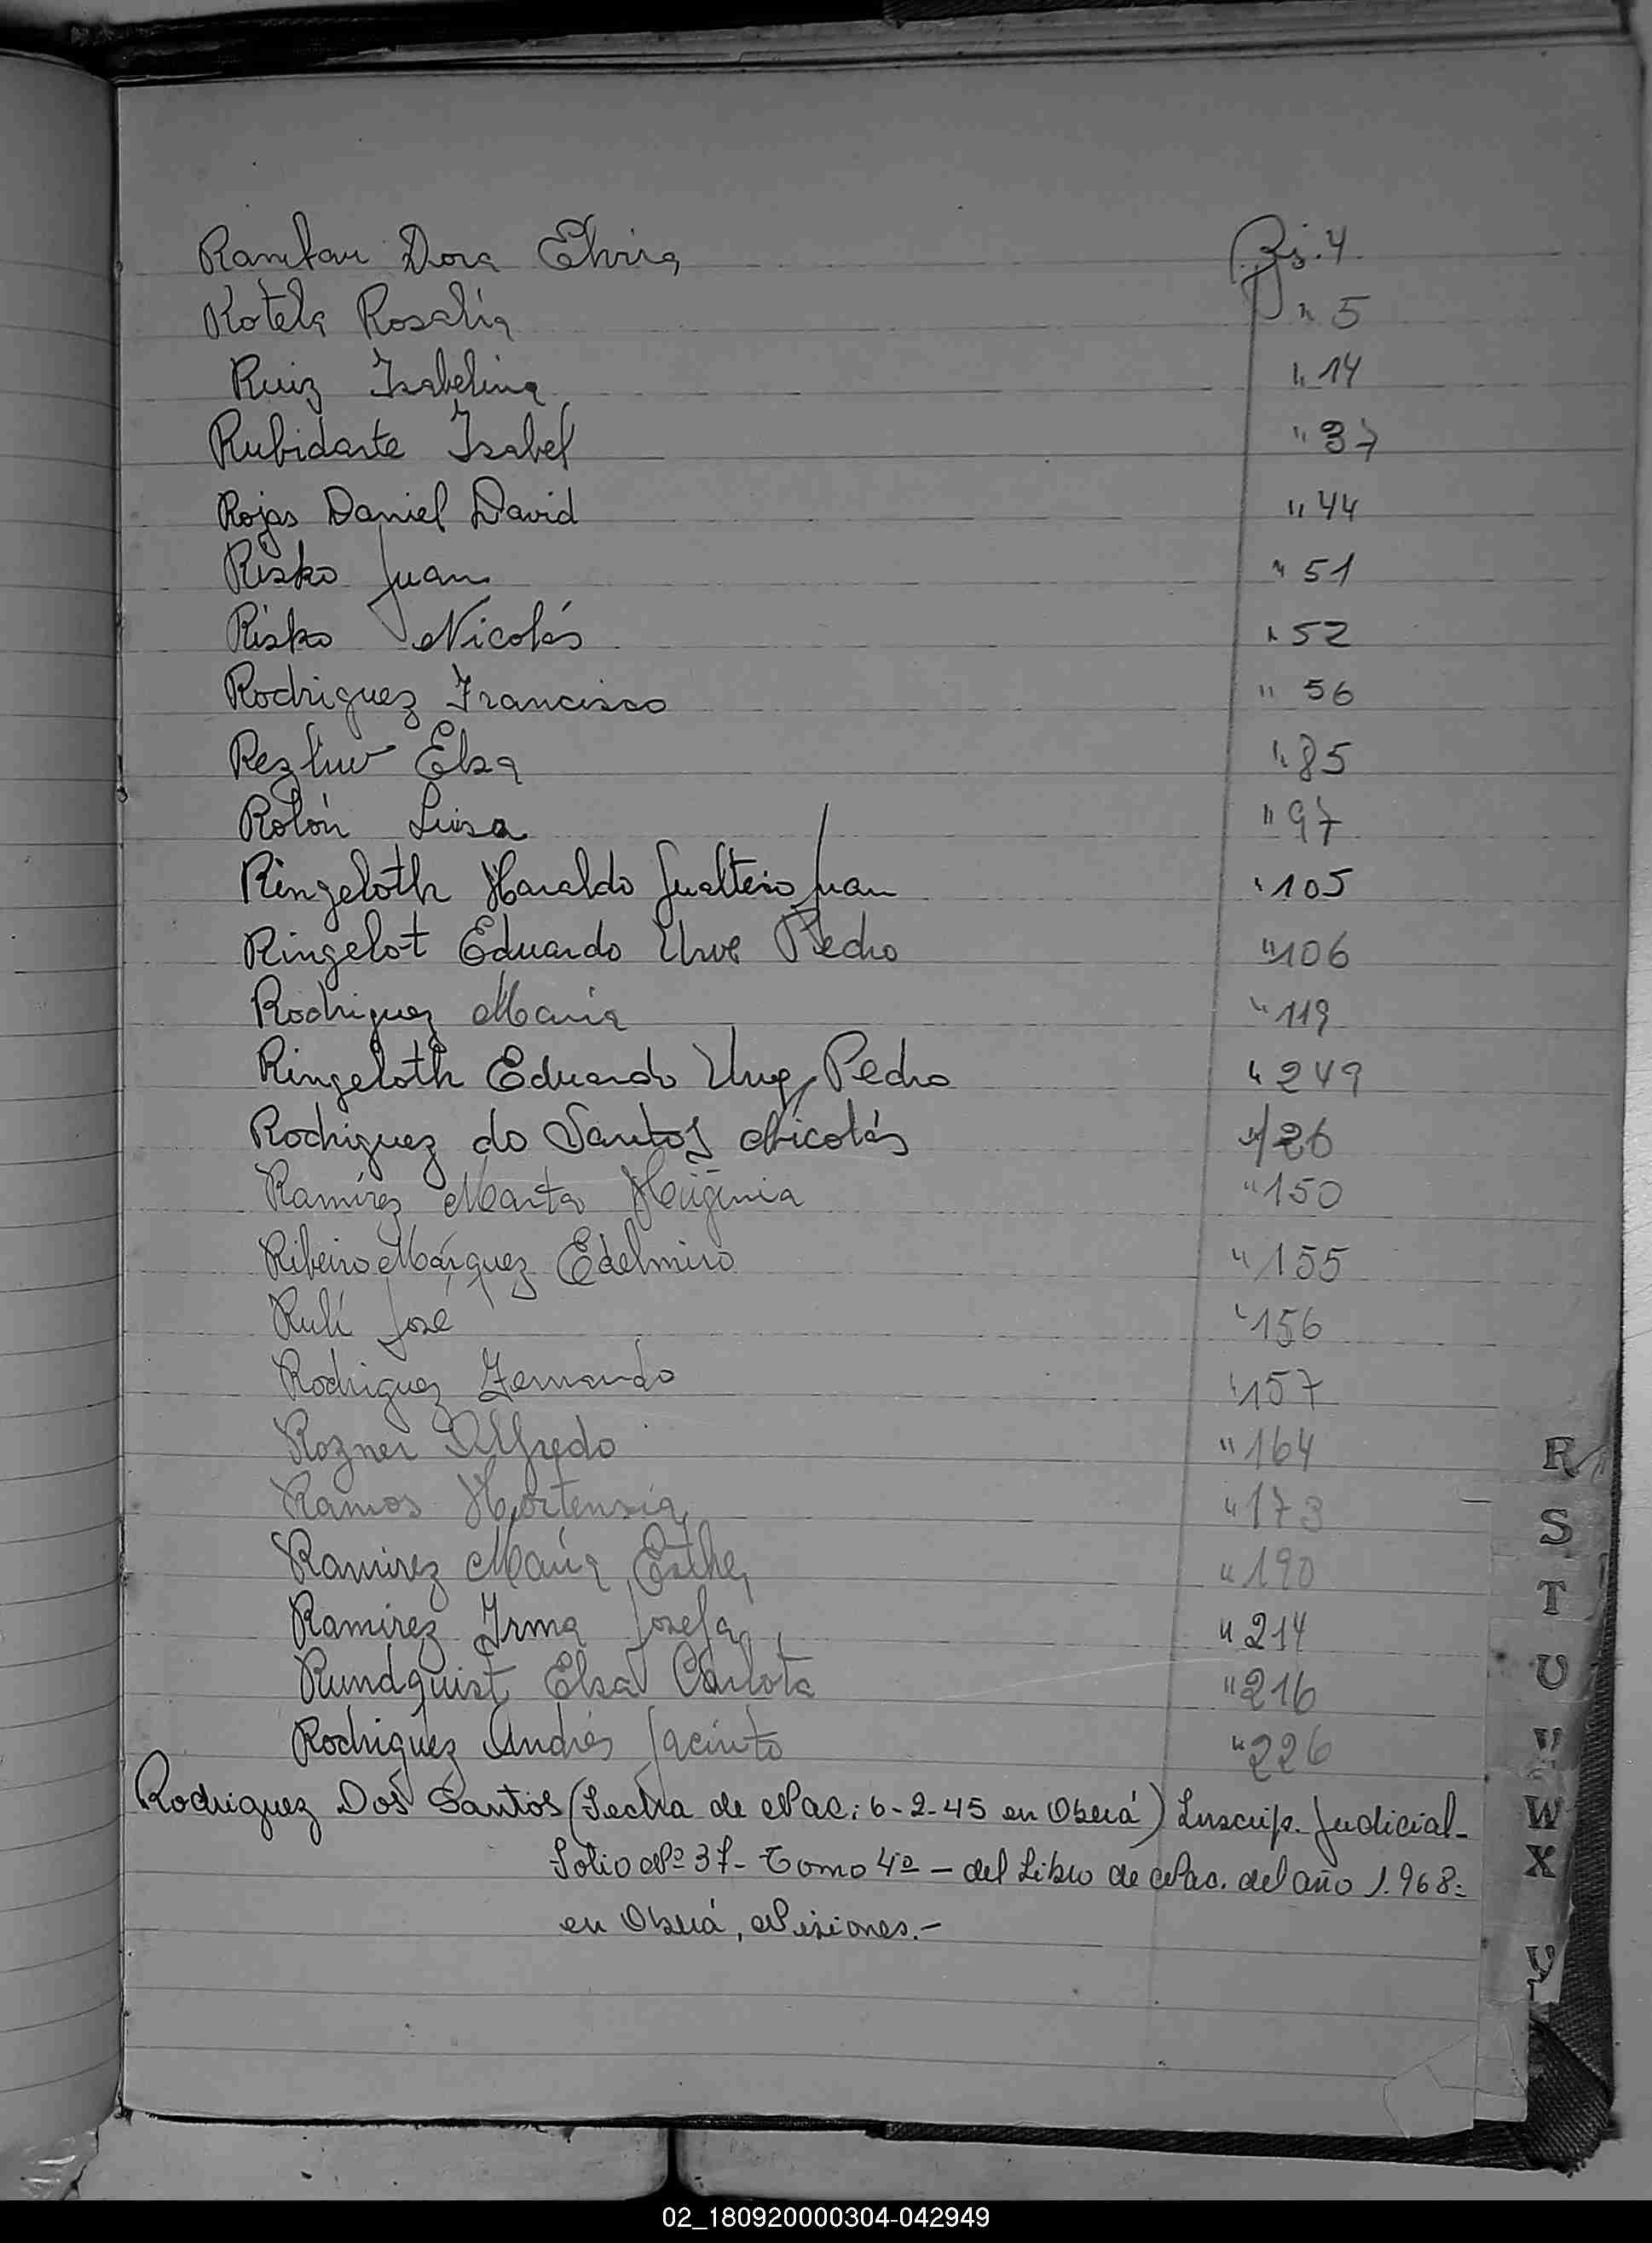 Dora Elvira Pág. 4
Kotela Rosalía " 5
Ruiz Isabelina " 14
Rubidarte Isabel " 37
Rojas Daniel David " 44
Risko Juan " 51
Risko Nicolás " 52
Rodriguez Francisco " 56
Elsa " 85
Rolón Luisa " 97
Ringeloth Haraldo Gualterio Juan " 105
Ringelot Eduardo Uwe Pedro " 106
Rodriguez María " 119
Ringeloth Eduardo Pedro " 249
Rodriguez do Santos Nicolás 26
Ramírez Marta " 150
Ribeiro Márquez Edelmiro " 155
José " 156
Rodriguez Fernando " 157
Rozner Alfredo " 164
Ramos Hortensia " 173
Ramirez María Esther " 190
Ramirez Irma Josefa " 214
Rundquist Elsa Carlota " 216
Rodriguez Andrés Jacinto " 226
Rodriguez Dos Santos (Fecha de Nac: 6-2-45 en Oberá) Inscrip. Judicial-
Folio Nº 37- Tomo 4º - del Libro de Nac. del año 1.968-
en Oberá, Misiones.-
R
S
T
U
V
W
X
Y
02_180920000304-042949